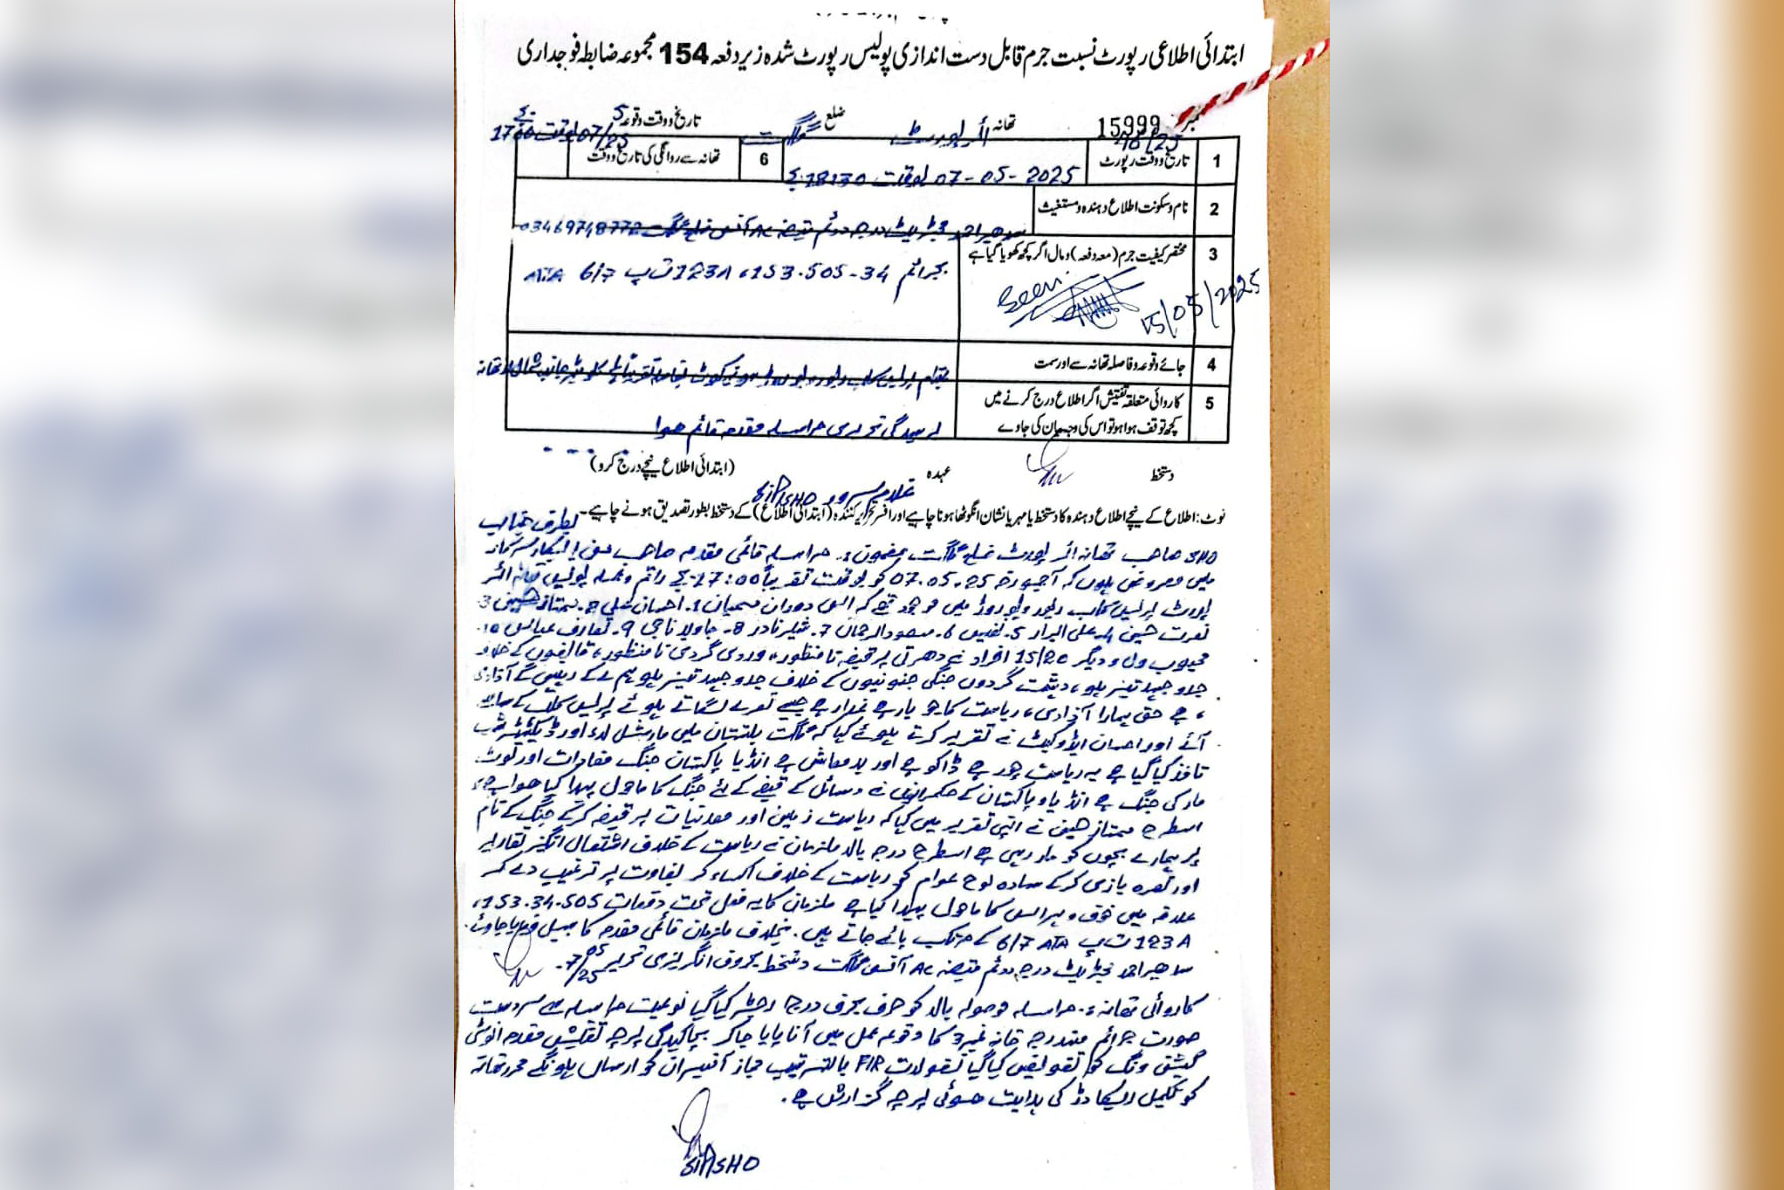 ابتدائی اطلاعی رپورٹ نسبت جرم قابل دست اندازی پولیس رپورٹ شدہ زیر دفعہ 154 مجموعہ ضابطہ فوجداری
نمبر 15999 تھانہ ائرپورٹ ضلع گلگت تاریخ و وقت وقوعہ 07/5/25 بوقت 1700 بجے
1 تاریخ و وقت رپورٹ 07-05-2025 بوقت 18:30 بجے 6 تھانہ سے روانگی کی تاریخ و وقت
2 نام و سکونت اطلاع دہندہ و مستغیث مجسٹریٹ درجہ دوئم متیضہ AC آفس ضلع گلگت 03469748772
3 مختصر کیفیت جرم (معہ دفعہ) و مال اگر کچھ کھویا گیا ہے بجرائم 34-505،153،123A ت پ 6/7 ATA
Seen 15/05/2025
4 جائے وقوعہ و فاصلہ تھانہ سے اور سمت بمقام پریس کلب ریور ویو روڈ
5 کاروائی متعلقہ تفتیش اگر اطلاع درج کرنے میں
کچھ توقف ہوا ہو تو اس کی وجہ بیان کی جاوے برسیدگی تحریری مراسلہ مقدمہ قائم ہوا
دستخط عہدہ (ابتدائی اطلاع نیچے درج کرو)
غلام سرور SIP/SHO
نوٹ: اطلاع کے نیچے اطلاع دہندہ کا دستخط یا مہر یا نشان انگوٹھا ہونا چاہیے اور افسر تحریر کنندہ (ابتدائی اطلاع) کے دستخط بطور تصدیق ہونے چاہیے۔ بطرف جناب
SHO صاحب تھانہ ائرپورٹ ضلع گلگت مضمون: مراسلہ قائمی مقدمہ صاحب من!
میں معروض ہوں کہ آجمورخہ 07.05.25 کو بوقت تقریباً 17:00 بجے راقم و عملہ پولیس تھانہ ائر
پورٹ پریس کلب ریور ویو روڈ میں موجود تھے کہ اس دوران مسمیان 1۔ احسان علی 2۔ ممتاز حسین 3۔
نصرت حسین 4۔ علی ابرار 5۔ نفیس 6۔ مسعود الرحمان 7۔ شیر نادر 8۔ جاولا ناجی 9۔ تعارف عباس 10۔
محبوب ولی و دیگر 15/20 افراد نے دھرتی پر قبضہ نا منظور، وردی گردی نا منظور، قابضوں کے خلاف
جدوجہد تیز ہو، دہشت گردوں جنگی جنونیوں کے خلاف جدوجہد تیز ہو ہم لے کے رہیں گے آزادی
، ہے حق ہمارا آزادی، ریاست کا جو یار ہے غدار ہے جیسے نعرے لگاتے ہوئے پریس کلب کے سامنے
آئے اور احسان ایڈوکیٹ نے تقریر کرتے ہوئے کہا کہ گلگت بلتستان میں مارشل لاء اور ڈکٹیٹر شپ
نافذ کیا گیا ہے یہ ریاست چور ہے ڈاکو ہے اور بدمعاش ہے انڈیا پاکستان جنگ مفادات اور لوٹ
مار کی جنگ ہے انڈیا و پاکستان کے حکمرانوں نے وسائل کے قبضے کے لئے جنگ کا ماحول پیدا کیا ہوا ہے،
اسطرح ممتاز حسین نے اپنی تقریر میں کہا کہ ریاست زمین اور معدنیات پر قبضہ کرکے جنگ کے نام
پر ہمارے بچوں کو مار رہی ہے اسطرح درجہ بالا ملزمان نے ریاست کے خلاف اشتعال انگیز تقاریر
اور نعرہ بازی کرکے سادہ لوح عوام کو ریاست کے خلاف اکساء کر بغاوت پر ترغیب دے کر
علاقہ میں خوف و ہراس کا ماحول پیدا کیا ہے ملزمان کا یہ فعل تحت دفعات 153.34.505،
123A ت پ 6/7 ATA کے مرتکب پائے جاتے ہیں۔ بخلاف ملزمان قائمی مقدمہ کا سبیل فرمایا جاوئے۔
مجسٹریٹ درجہ دوئم متیضہ AC آفس گلگت دستخط بحروف انگریزی تحریر 7/05/25۔
کاروائی تھانہ:۔ مراسلہ موصولہ بالا کو حرف بحرف درج رجسٹر کیا گیا نوعیت مراسلہ سے سردست
صورت جرائم مندرجہ خانہ نمبر 3 کا وقوعہ عمل میں آنا پایا جاکر بچاکیدگی پرچہ تفتیش مقدمہ انوسٹی
گیشن ونگ کو تفویض کیا گیا نقولات FIR بالترتیب مجاز آفیسران کو ارسال ہونگے محرر تھانہ
کو تکمیل ریکارڈ کی ہدایت ہوئی پرچہ گزارش ہے۔
SIP/SHO